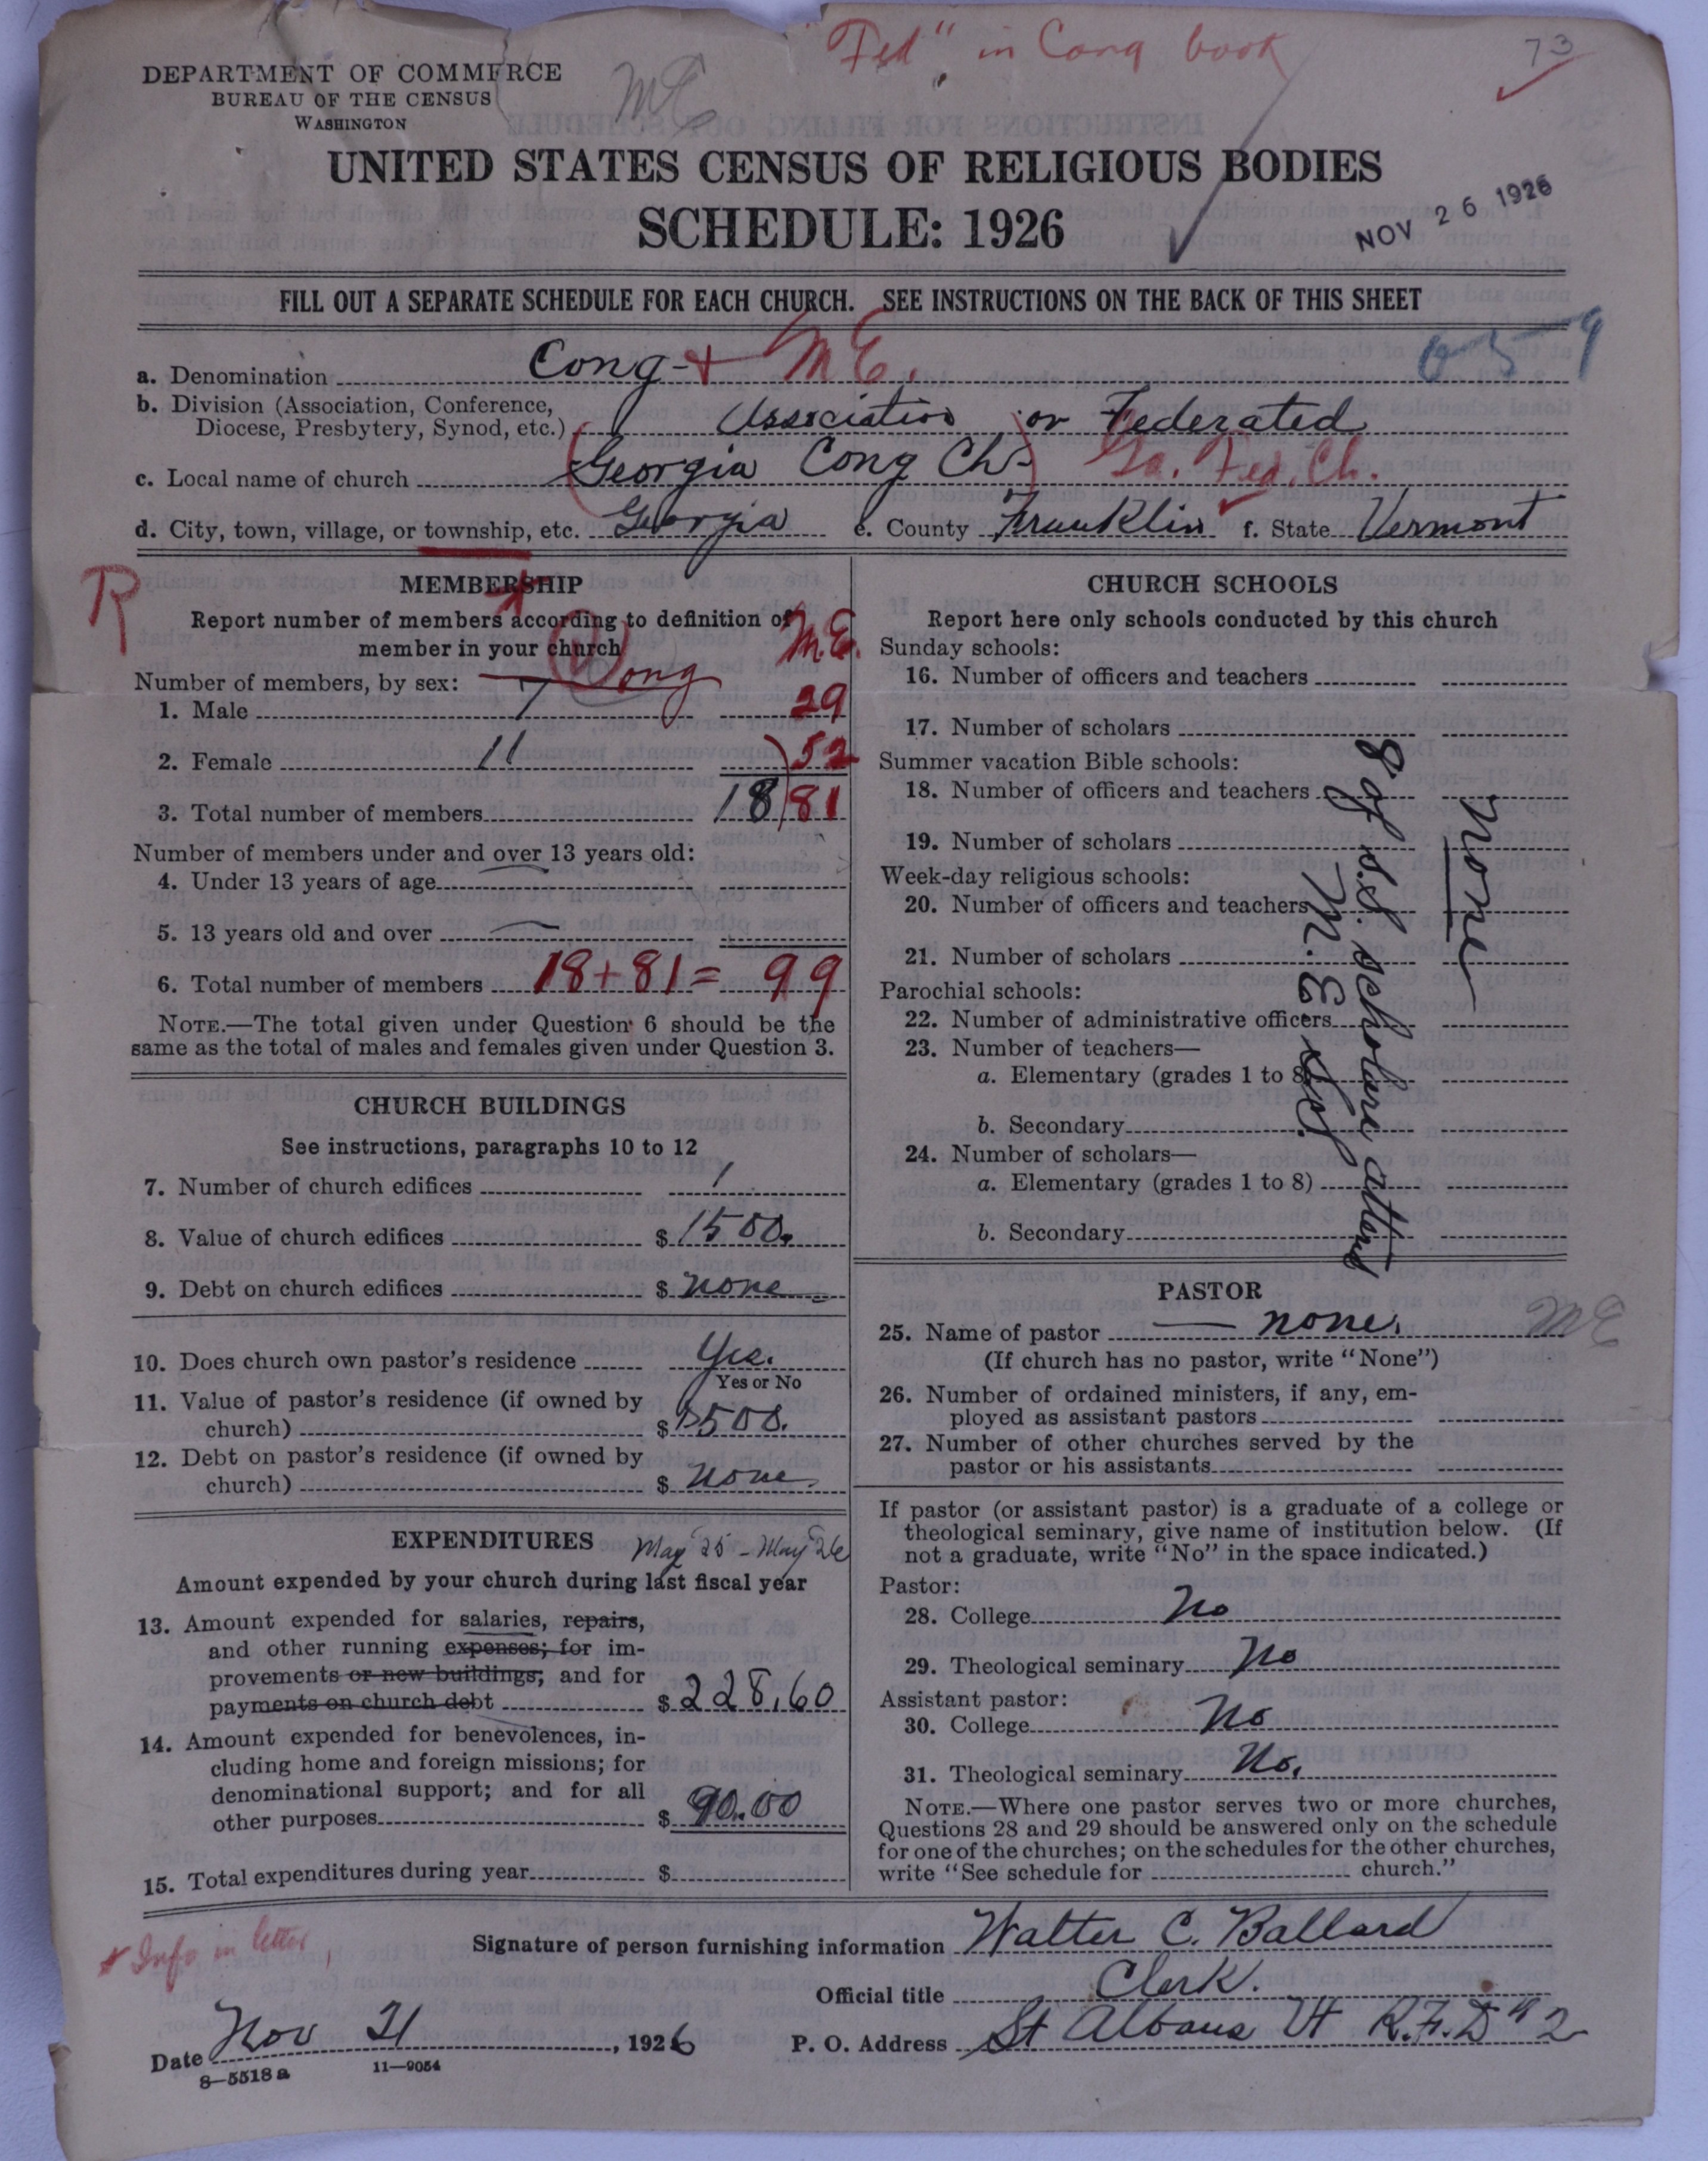 "Fed" in Cong book
73
DEPARTMENT OF COMMERCE
BUREAU OF THE CENSUS
WASHINGTON
ME
UNITED STATES CENSUS OF RELIGIOUS BODIES
SCHEDULE: 1926
NOV 26 1926
FILL OUT A SEPARATE SCHEDULE FOR EACH CHURCH. SEE INSTRUCTIONS ON THE BACK OF THIS SHEET
a. Denomination Cong + M E.
b. Division (Association, Conference,
Diocese, Presbytery, Synod, etc.) Association or Federated
c. Local name of church (Georgia Cong Ch.) Ga. Fed. Ch.
d. City, town, village, or township, etc. Georgia e. County Franklin f. State Vermont
R
MEMBERSHIP
Report number of members according to definition of
member in your church
M.E.
Number of members, by sex: Cong
1. Male 7 29
2. Female 11 52
3. Total number of members 18 81
Number of members under and over 13 years old:
4. Under 13 years of age
5. 13 years old and over
6. Total number of members 18+81= 99
NOTE.—The total given under Question 6 should be the
same as the total of males and females given under Question 3.
CHURCH BUILDINGS
See instructions, paragraphs 10 to 12
7. Number of church edifices 1
8. Value of church edifices $ 1500.
9. Debt on church edifices $ none
10. Does church own pastor's residence Yes.
Yes or No
11. Value of pastor's residence (if owned by
church) $ 1500.
12. Debt on pastor's residence (if owned by
church) $ none
EXPENDITURES May 25 - May 26
Amount expended by your church during last fiscal year
13. Amount expended for salaries, repairs,
and other running expenses; for im-
provements or new buildings; and for
payments on church debt $ 228.60
14. Amount expended for benevolences, in-
cluding home and foreign missions; for
denominational support; and for all
other purposes $ 90.00
15. Total expenditures during year $
CHURCH SCHOOLS
Report here only schools conducted by this church
Sunday schools:
16. Number of officers and teachers
17. Number of scholars
Summer vacation Bible schools:
18. Number of officers and teachers
19. Number of scholars
Week-day religious schools:
20. Number of officers and teachers
21. Number of scholars
Parochial schools:
22. Number of administrative officers
23. Number of teachers—
a. Elementary (grades 1 to 8)
b. Secondary
24. Number of scholars—
a. Elementary (grades 1 to 8)
b. Secondary
none
8 of s.s. scholars attend
M. E.
PASTOR
25. Name of pastor none. ME
(If church has no pastor, write "None")
26. Number of ordained ministers, if any, em-
ployed as assistant pastors
27. Number of other churches served by the
pastor or his assistants
If pastor (or assistant pastor) is a graduate of a college or
theological seminary, give name of institution below. (If
not a graduate, write "No" in the space indicated.)
Pastor:
28. College No
29. Theological seminary No
Assistant pastor:
30. College No
31. Theological seminary No.
NOTE.—Where one pastor serves two or more churches,
Questions 28 and 29 should be answered only on the schedule
for one of the churches; on the schedules for the other churches,
write "See schedule for church."
Info in letter
Signature of person furnishing information Walter C. Ballard
Official title Clerk.
Date Nov 21, 1926 P. O. Address St Albans Vt R.F.D # 2
8—5518 a 11—9054